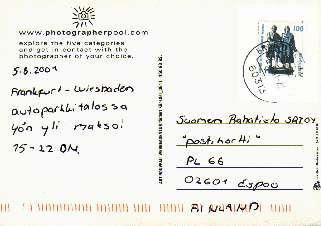 www.photographerpool.com
explore the five categories
and get in contact with the
photographer of your choice.
5.8.2001
Frankfurt - Wiesbaden
autoparkkitalossa
yön yli maksoi
15-22 DM.
100
60313
Suomen Rabatisto SATOY
"postikortti"
PL 66
02601 Espoo
FINLAND